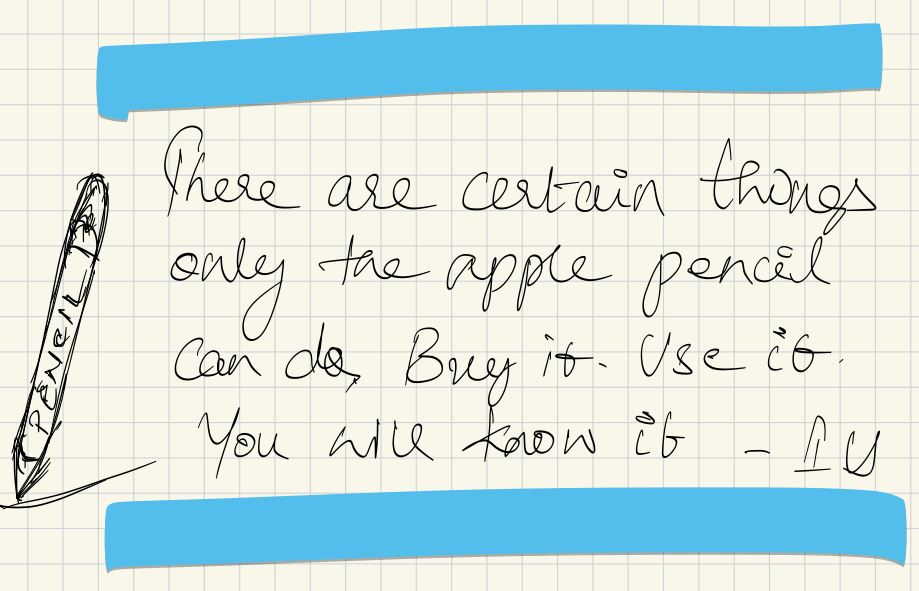 There are certain things
only the apple pencil
can do, Buy it. Use it.
You will know it - IY
PENCIL